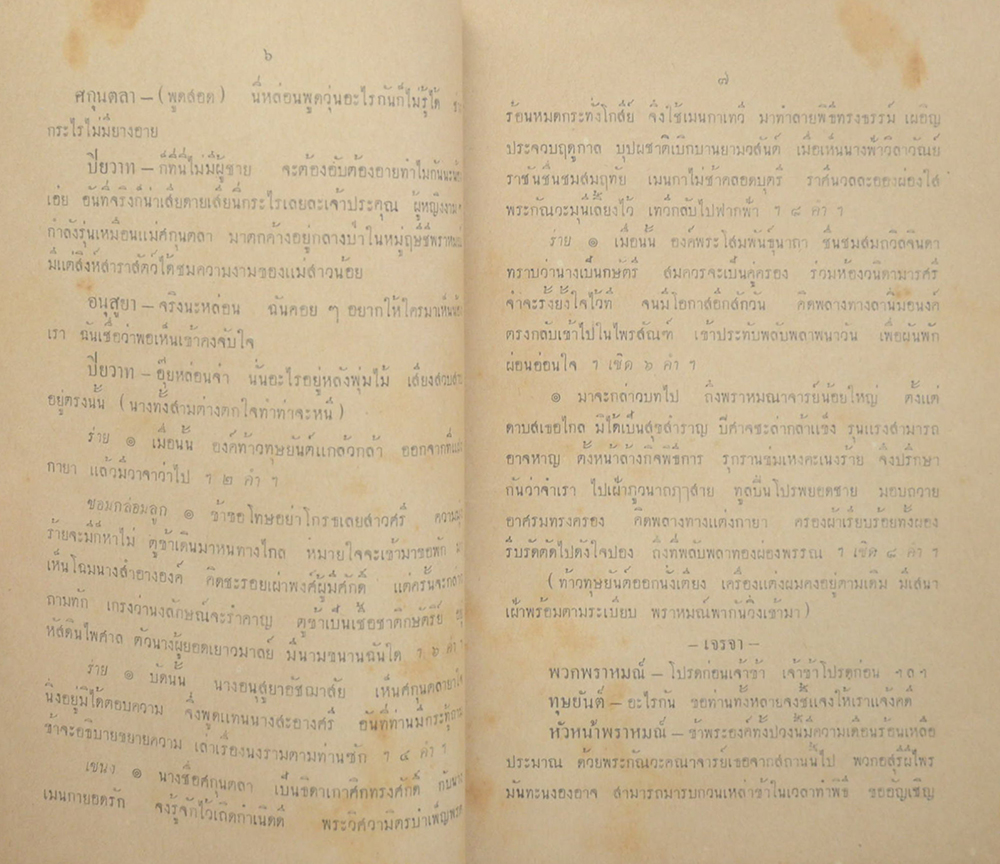 ๖
ศกุนตลา — (พูดสอด) นี่หล่อนพูดวุ่นอะไรกันก็ไม่รู้ได้
กระไรไม่มียางอาย
ปิยวาท — ก็ที่นี่ไม่มีผู้ชาย จะต้องอับต้องอายทำไมกันนะ
เอ่ย อันที่จริงก็น่าเสียดายเสียนี่กระไรเลยละเจ้าประคุณ ผู้หญิงงาม
กำลังรุ่นเหมือนแม่ศกุนตลา มาตกค้างอยู่กลางป่าในหมู่ฤษีชีพราหมณ์
มีแต่สิงห์สาราสัตว์ได้ชมความงามของแม่สาวน้อย
อนุสูยา — จริงนะหล่อน ฉันคอย ๆ อยากให้ใครมาเห็น
เรา ฉันเชื่อว่าพอเห็นเข้าคงจับใจ
ปิยวาท — อุ๊ยหล่อนจ๋า นั่นอะไรอยู่หลังพุ่มไม้ เสียงสวบสาบ
อยู่ตรงนั้น (นางทั้งสามต่างตกใจทำท่าจะหนี)
ร่าย ๏ เมื่อนั้น องค์ท้าวทุษยันต์แกล้วกล้า ออกจากที่
กายา แล้วมีวาจาว่าไป ฯ ๒ คำ ฯ
ชอมกล่อมลูก ๏ ข้าขอโทษอย่าโกรธเลยสาวศรี ความ
ร้ายจะมีก็หาไม่ ตูข้าเดินมาหนทางไกล หมายใจจะเข้ามาขอพัก
เห็นโฉมนางสำอางองค์ คิดชะรอยเผ่าพงศ์ผู้มีศักดิ์ แต่ครั้นจะ
ถามทัก เกรงว่านงลักษณ์จะรำคาญ ตูข้าเป็นเชื้อชาติกษัตริย์
หัสดินไพศาล ตัวนางผู้ยอดเยาวมาลย์ มีนามขนานฉันใด ฯ ๖ คำ ฯ
ร่าย ๏ บัดนั้น นางอนุสูยาอัชฌาสัย เห็นศกุนตลายาใจ
นิ่งอยู่มิได้ตอบความ จึ่งพูดแทนนางสะอางศรี อันที่ท่านมีกระทู้ถาม
ข้าจะอธิบายขยายความ เล่าเรื่องนงรามตามท่านซัก ฯ ๔ คำ ฯ
เขนง ๏ นางชื่อศกุนตลา เป็นธิดาเกาศิกทรงศักดิ์ กับนาง
เมนกายอดรัก จงรู้จักไว้เถิดกำเนิดดี พระวิศวามิตรบำเพ็ญพรต
๗
ร้อนหมดกระทั่งโกสีย์ จึ่งใช้เมนกาเทวี มาทำลายพิธีทรงธรรม์ เผอิญ
ประจวบฤดูกาล บุปผชาติเบิกบานยามวสันต์ เมื่อเห็นนางฟ้าวิลาวัณย์
ราชันชื่นชมสมฤทัย เมนกาไม่ช้าคลอดบุตรี ราศีนวลละอองผ่องใส
พระกัณวะมุนีเลี้ยงไว้ เทวีกลับไปฟากฟ้า ฯ ๘ คำ ฯ
ร่าย ๏ เมื่อนั้น องค์พระโสมพันธุ์นาถา ชื่นชมสมถวิลจินดา
ทราบว่านางเป็นกษัตรี สมควรจะเป็นคู่ครอง ร่วมห้องวนิดามารศรี
จำจะรั้งยั้งใจไว้ที จนมีโอกาสอีกสักวัน คิดพลางทางลานิมลอนงค์
ตรงกลับเข้าไปในไพรสัณฑ์ เข้าประทับพลับพลาพนาวัน เพื่อผันพัก
ผ่อนอ่อนใจ ฯ เชิด ๖ คำ ฯ
๏ มาจะกล่าวบทไป ถึงพราหมณาจารย์น้อยใหญ่ ตั้งแต่
ดาบสเธอไกล มิได้เป็นสุขสำราญ ปีศาจชะล่ากล้าแข็ง รุนแรงสามารถ
อาจหาญ ตั้งหน้าล้างกิจพิธีการ รุกรานข่มเหงคะเนงร้าย จึ่งปรึกษา
กันว่าจำเรา ไปเฝ้าภูวนาถฦๅสาย ทูลปิ่นโปรพยอดชาย มอบถวาย
อาศรมทรงครอง คิดพลางทางแต่งกายา ครองผ้าเรียบร้อยทั้งผอง
รีบรัดตัดไปดังใจปอง ถึงที่พลับพลาทองผ่องพรรณ ฯ เชิด ๘ คำ ฯ
(ท้าวทุษยันต์ออกนั่งเตียง เครื่องแต่งผมคงอยู่ตามเดิม มีเสนา
เฝ้าพร้อมตามระเบียบ พราหมณ์พากันวิ่งเข้ามา)
— เจรจา —
พวกพราหมณ์ — โปรดก่อนเจ้าข้า เจ้าข้าโปรดก่อน ฯลฯ
ทุษยันต์ — อะไรกัน ขอท่านทั้งหลายจงชี้แจงให้เราแจ้งคดี
หัวหน้าพราหมณ์ — ข้าพระองค์ทั้งปวงนี้มีความเดือนร้อนเหลือ
ประมาณ ด้วยพระกัณวะคณาจารย์เธอจากสถานนี้ไป พวกอสุรีผีไพร
มันทะนงองอาจ สามารถมารบกวนเหล่าข้าในเวลาทำพิธี ขออัญเชิญ